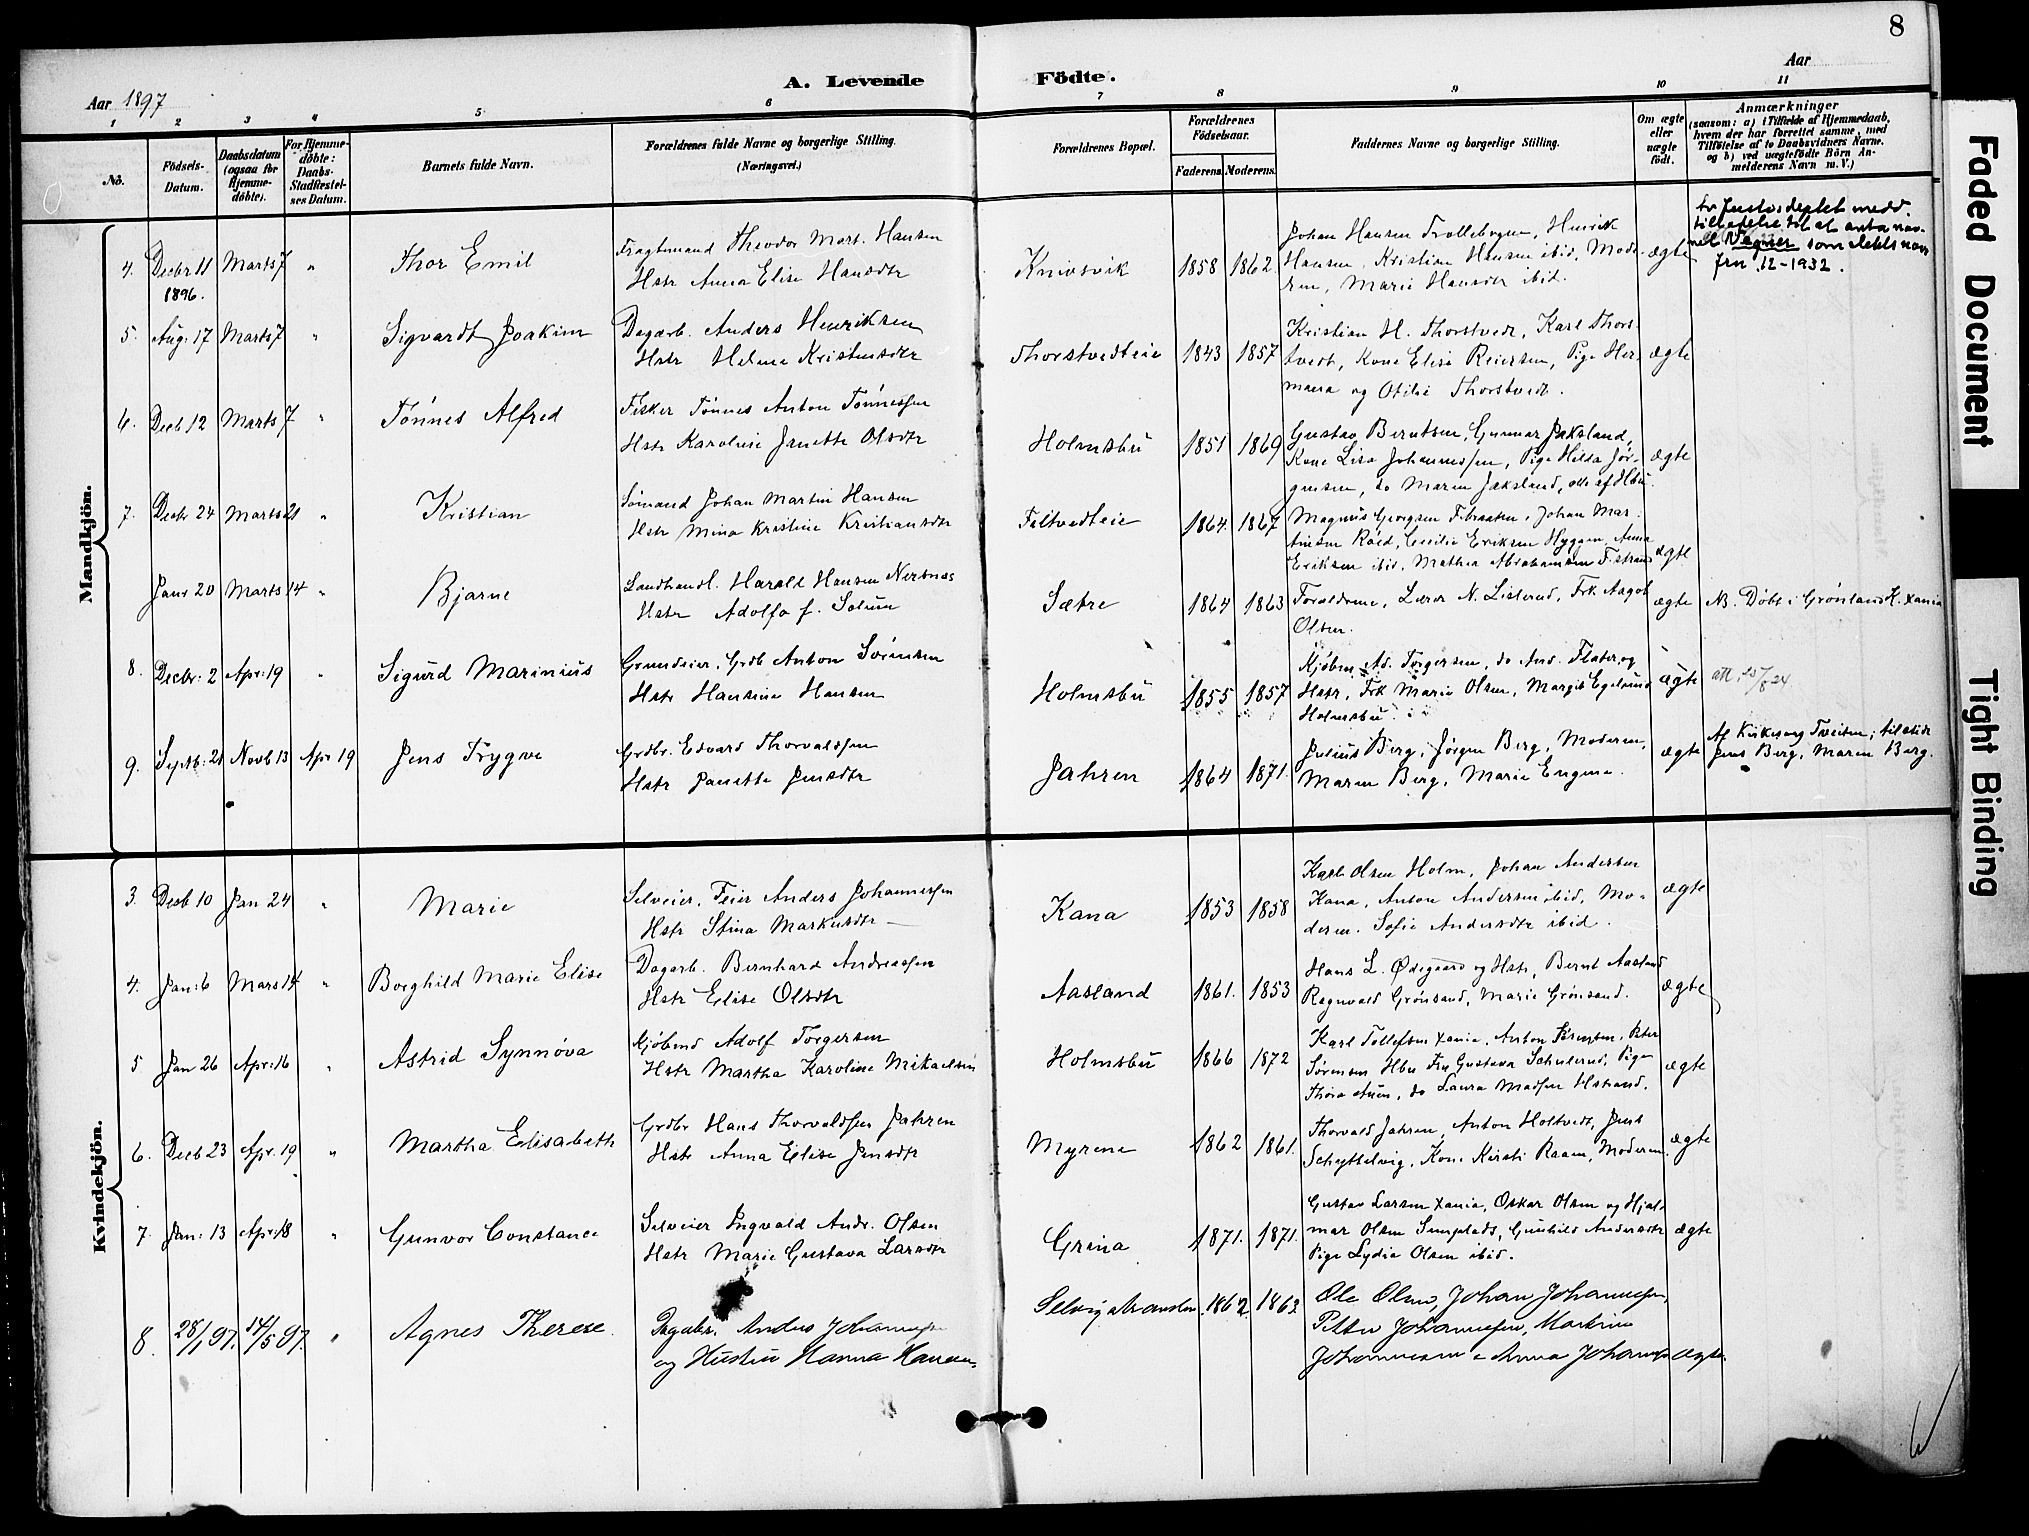 8
Aar 1897
A. Levende Födte.
Aar
1 2 3 4 5 6 7 8 9 10 11
No.
Födsels-Datum.
Daabsdatum (ogsaa for Hjemme-döbte).
For Hjemme-döbte: Daabs-Stadfæstelses Datum.
Barnets fulde Navn.
Forældrenes fulde Navne og borgerlige Stilling.
(Næringsvei.)
Forældrenes Bopæl.
Forældrenes Födselsaar.
Faderens. Moderens.
Faddernes Navne og borgerlige Stilling.
Om ægte eller uægte födt.
Anmærkninger
(saasom: a) i Tilfælde af Hjemmedaab, hvem der har forrettet samme, med Tilföielse af to Daabsvidners Navne. og b) ved uægtefödte Börn Anmelderens Navn m. V.)
Mandkjön.
4. Decbr 11 1896. Marts 7 " Thor Emil
Fragtmand Theodor Mart. Hansen
Hstr Anna Elise Hansdtr
Knivsvik 1858 1862
Johan Hansen Trollebogen, Henrik
Hansen, Kristian Hansen ibid, Mode-
ren, Marie Hansdtr ibid.
ægte
navnet Wegner som slektsnavn
12-1932.
5. Aug. 17 Marts 7 " Sigvardt Joakim
Dagarb. Anders Henriksen
Hstr Helene Kristensdtr
Thorstvedteie 1843 1857
Kristian H. Thorstvedt, Karl Thors-
tvedt, Kone Elise Reiersen, Pige Her-
mana og Otilie Thorstvedt.
ægte
6. Decb 12 Marts 7 " Tönnes Alfred
Fisker Tönnes Anton Tönnessen
Hstr Karoline Janette Olsdtr
Holmsbu 1851 1869
Gustav Berntsen, Gunnar Jaksland,
Kone Lisa Johannessen, Pige Hilda Jör-
gensen, do Maren Jaksland, alle af Hbu.
ægte
7. Decbr 24 Marts 21 " Kristian
Sömand Johan Martin Hansen
Hstr Mina Kristine Kristiansdtr
Feltvedteie 1864. 1867
Magnus Georgsen Fibraaten, Johan Mar-
tinsen Röed, Cecilie Eriksen Hyggen, Anna
Eriksen ibid, Mathea Abrahamsen F.strand
ægte
Janr 20 Marts 14 " Bjarne
Landhandl. Harald Hansen Nersnæs
Hstr Adolfa f. Solum
Sætre 1864 1863
Forældrene, Lærer N. Listerud, Frk. Aagot
Olsen.
ægte
NB. Döbt i Grönland K. Xania
8. Decbr: 2 Apr: 19 " Sigurd Marinius
Grundeier, Grdb Anton Sörensen
Hstr Hansine Hansen
Holmsbu 1855 1857
Kjöbm. Ad. Torgersen, do And. Flater og
Hstr, Frk Marie Olsen, Margit Egelund
Holmsbu
ægte
att. 25/8 24
9. Septb: 21 Novb 13 Apr 19 Jens Trygve
Grdbr. Edvard Thorvaldsen
Hstr Janette Jensdtr
Jahren 1864 1871.
Julius Berg, Jörgen Berg, Moderen,
Maren Berg, Marie Engene.
ægte
Af Kirkesang. Tveiten; tilstede
Jens Berg, Maren Berg.
Kvindekjön.
3. Decb 10 Jan 24 " Marie
Selveier, Feier Anders Johannessen
Hstr Stina Markusdtr
Kana 1853 1858
Karl Olsen Holm, Johan Andersen
Kana, Anton Andersen ibid, Mo-
deren. Sofie Andersdtr ibid.
ægte
4. Jan: 6 Mars 14 " Borghild Marie Elise
Dagarb. Bernhard Andreassen
Hstr Elise Olsdtr
Aasland 1861. 1853
Hans L. Ødegaard og Hstr, Bernt Aasland
Ragnvald Grönsand, Marie Grönsand.
ægte
5 Jan 26 Apr: 16 " Astrid Synnöva
Kjöbmd Adolf Torgersen
Hstr Martha Karoline Mikaelsen
Holmsbu 1866 1872
Karl Tollefsen Xania, Anton Sörensen, Peter
Sörensen Hbu Fru Gustava Schulerud, Pige
Thora Auen, do Laura Madsen Hstrand.
ægte
6. Decb 23 Apr. 19 " Martha Elisabeth
Grdbr Hans Thorvaldsen Jahren
Hstr Anna Elise Jensdtr
Myrene 1862 1861.
Thorvald Jahren, Anton Holtvedt, Jens
Schyttelvig, Kone Kirsti Raaen, Moderen.
ægte
7. Jan: 13 Apr: 18 " Gunvor Constance
Selveier Ingvald Andr. Olsen
Hstr Marie Gustava Larsdtr
Grina 1871. 1871.
Gustav Larsen Xania, Oskar Olsen og Hjal-
mar Olsen Semplads, Gunhild Andersdtr
Pige Lydia Olsen ibid.
ægte
8. 28/1 97. 14/5 97. " Agnes Therese.
Dagarb. Anders Johannessen
og Hustru Hanna Hansen.
1862. 1863
Ole Olsen, Johan Johannessen,
Petter Johannessen, Martin
Johannesen & Anna Johannes
ægte.
Faded Document
Tight Binding